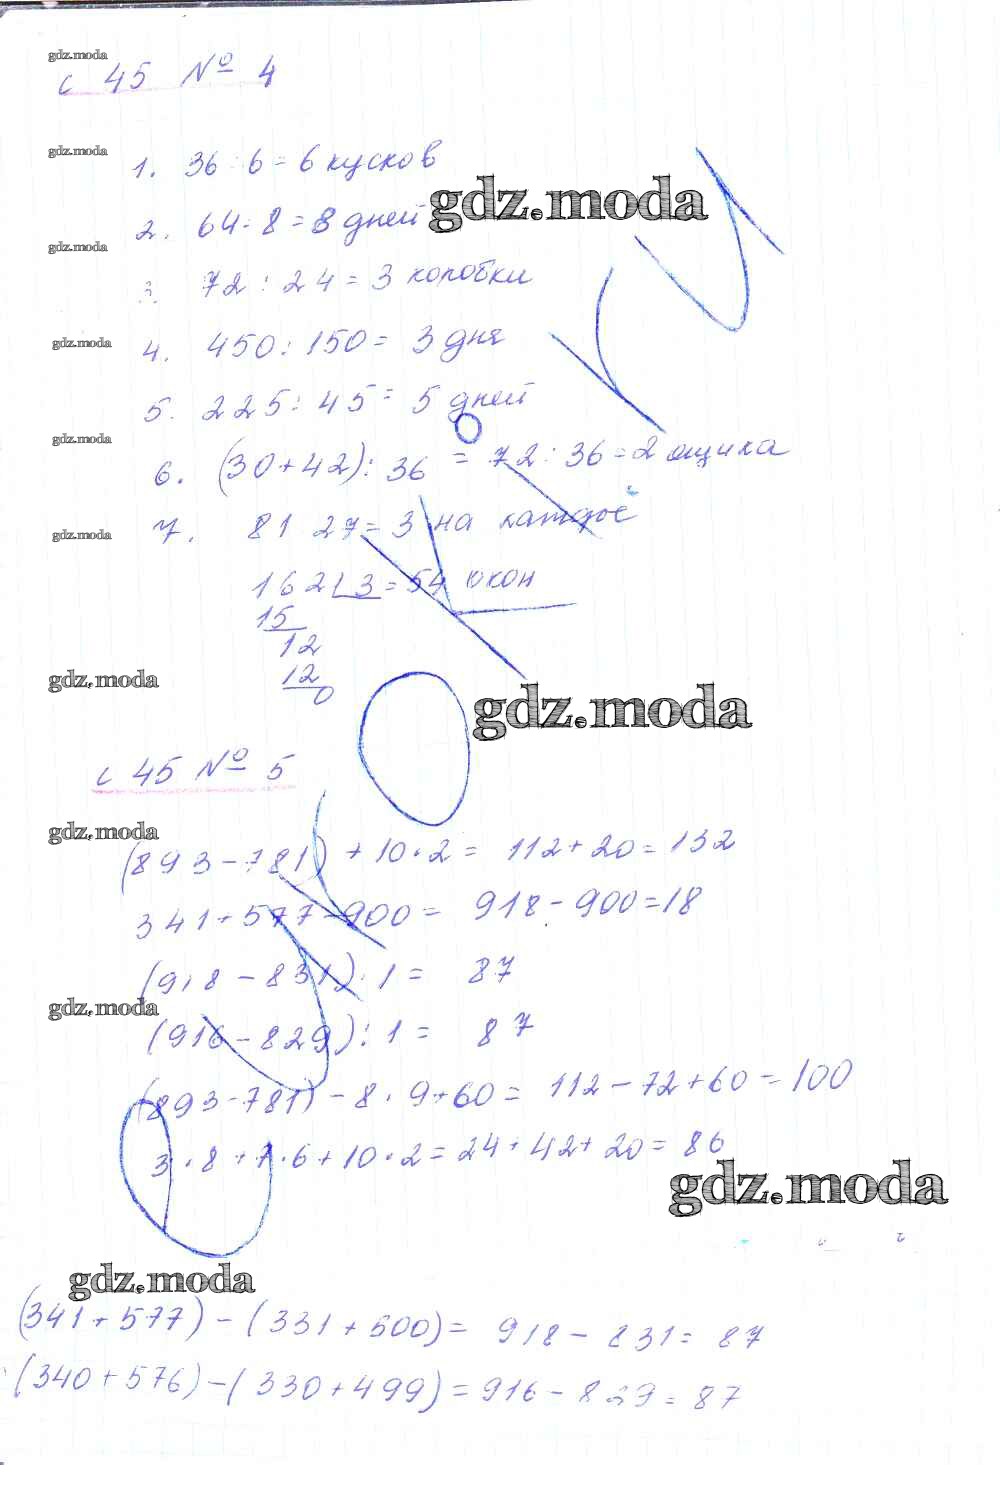 gdz.moda
с 45 № 4
gdz.moda
1. 36 : 6 = 6 кусков
gdz.moda
2. 64 : 8 = 8 дней
gdz.moda
3. 72 : 24 = 3 коробки
gdz.moda
4. 450 : 150 = 3 дня
5. 225 : 45 = 5 дней
gdz.moda
6. (30 + 42) : 36 = 72 : 36 = 2 ящика
gdz.moda
7. 81 27 = 3 на каждое
162 | 3 = 54 окон
15
12
gdz.moda
12
0
gdz.moda
с 45 № 5
gdz.moda
(893 - 781) + 10 · 2 = 112 + 20 = 132
341 + 577 - 900 = 918 - 900 = 18
(918 - 831) : 1 = 87
gdz.moda
(916 - 829) : 1 = 87
(893 - 781) - 8 · 9 + 60 = 112 - 72 + 60 = 100
3 · 8 + 7 · 6 + 10 · 2 = 24 + 42 + 20 = 86
gdz.moda
gdz.moda
(341 + 577) - (331 + 500) = 918 - 831 = 87
(340 + 576) - (330 + 499) = 916 - 829 = 87